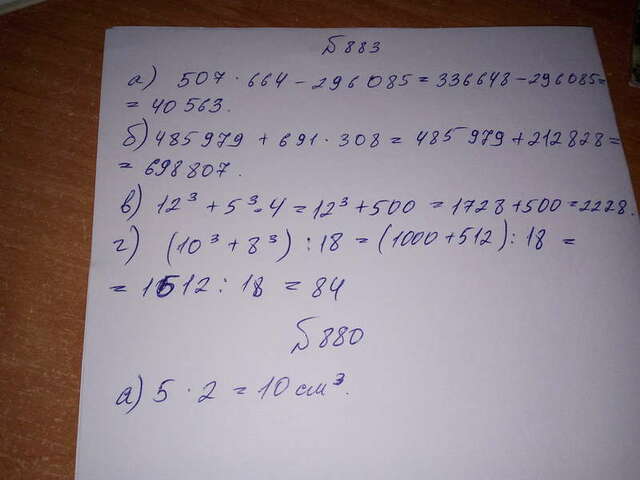 №883
а) 507 · 664 - 296085 = 336648 - 296085 =
= 40563.
б) 485979 + 691 · 308 = 485979 + 212828 =
= 698807.
в) 12³ + 5³ · 4 = 12³ + 500 = 1728 + 500 = 2228.
г) (10³ + 8³) : 18 = (1000 + 512) : 18 =
= 1512 : 18 = 84
№880
а) 5 · 2 = 10 см³.